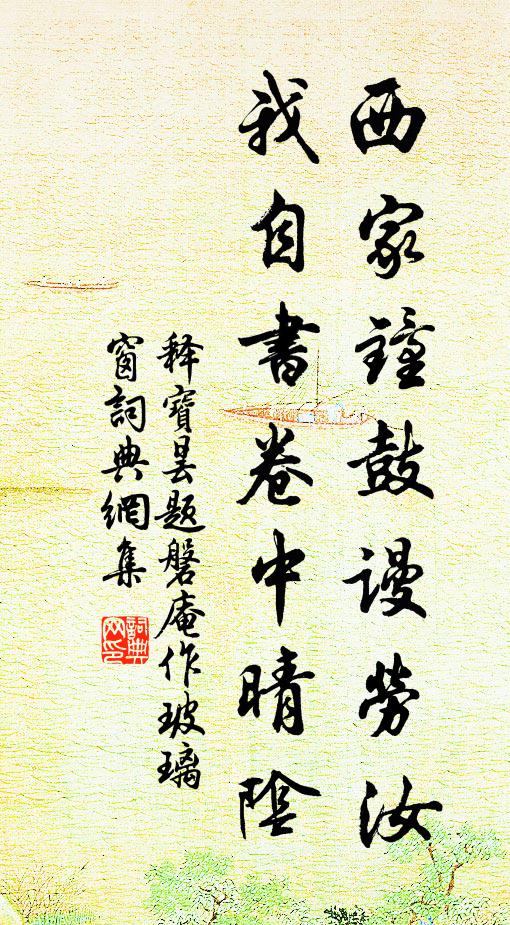 西家鐘鼓謾勞汝
我自書卷中晴陰
釋寶曇題磐庵作玻璃
窗詞典網集
詞典
网印